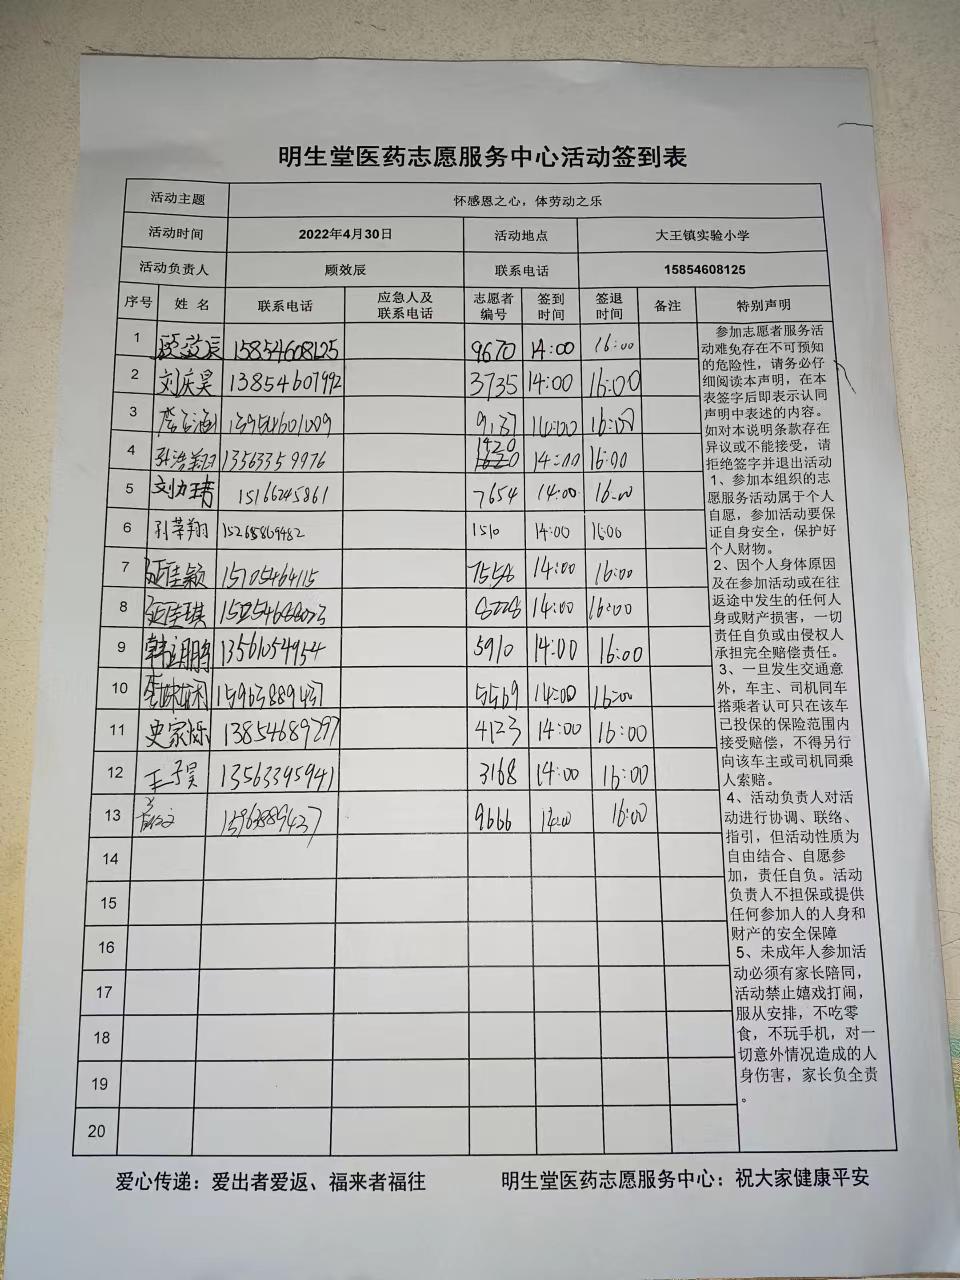 明生堂医药志愿服务中心活动签到表
活动主题 怀感恩之心，体劳动之乐
活动时间 2022年4月30日 活动地点 大王镇实验小学
活动负责人 顾效辰 联系电话 15854608125
序号 姓 名 联系电话 应急人及联系电话 志愿者编号 签到时间 签退时间 备注 特别声明
1 顾效辰 15854608125 9670 14:00 16:00
2 刘庆昊 13854607992 3735 14:00 16:00
3 14:00 16:00
4 孙浩翔 13563359976 1420 14:00 16:00
5 15166245861 7654 14:00 16:00
6 1510 14:00 16:00
7 15705464115 7556 14:00 16:00
8 14:00 16:00
9 13561054954 5910 14:00 16:00
10 15963889437 5569 14:00 16:00
11 史家烁 13854689797 4123 14:00 16:00
12 王子昊 13563395941 3168 14:00 16:00
13 15963889437 9666 14:00 16:00
14
15
16
17
18
19
20
参加志愿者服务活
动难免存在不可预知
的危险性，请务必仔
细阅读本声明，在本
表签字后即表示认同
声明中表述的内容。
如对本说明条款存在
异议或不能接受，请
拒绝签字并退出活动
1、参加本组织的志
愿服务活动属于个人
自愿，参加活动要保
证自身安全，保护好
个人财物。
2、因个人身体原因
及在参加活动或在往
返途中发生的任何人
身或财产损害，一切
责任自负或由侵权人
承担完全赔偿责任。
3、一旦发生交通意
外，车主、司机同车
搭乘者认可只在该车
已投保的保险范围内
接受赔偿，不得另行
向该车主或司机同乘
人索赔。
4、活动负责人对活
动进行协调、联络、
指引，但活动性质为
自由结合、自愿参
加，责任自负。活动
负责人不担保或提供
任何参加人的人身和
财产的安全保障
5、未成年人参加活
动必须有家长陪同，
活动禁止嬉戏打闹，
服从安排，不吃零
食，不玩手机，对一
切意外情况造成的人
身伤害，家长负全责
。
爱心传递：爱出者爱返、福来者福往 明生堂医药志愿服务中心：祝大家健康平安